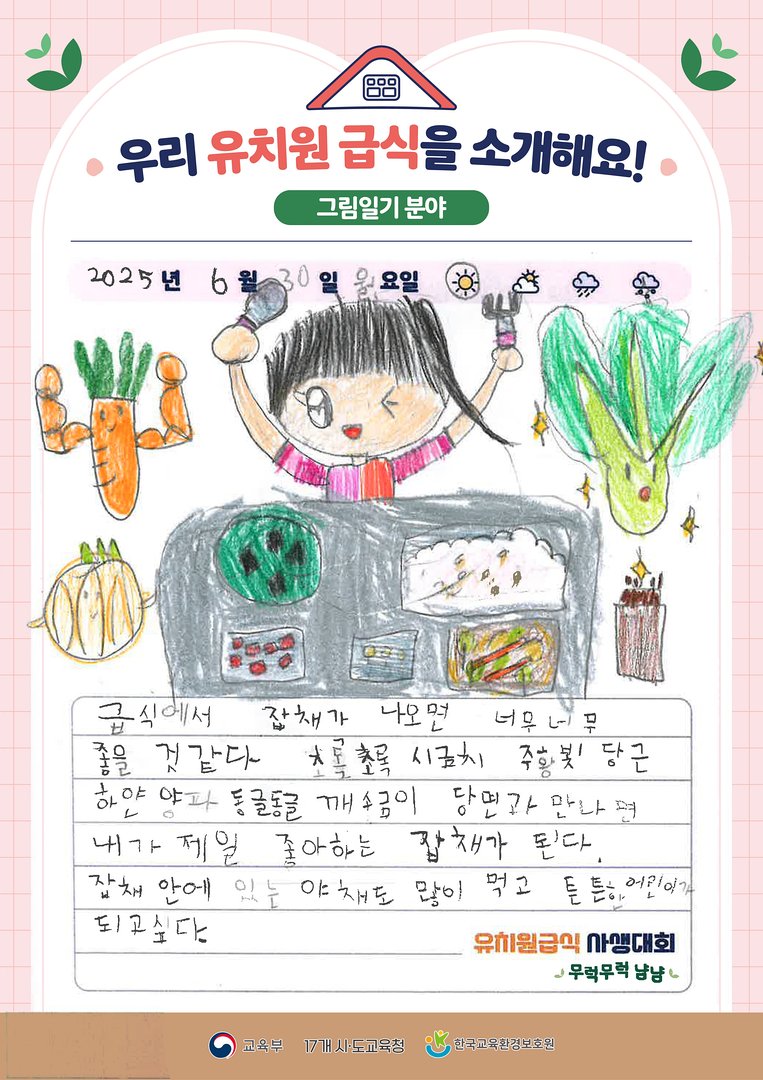 우리 유치원 급식을 소개해요!
그림일기 분야
2025년 6월 30일 월요일
급식에서 잡채가 나오면 너무너무
좋을 것 같다 초록초록 시금치 주황빛 당근
하얀 양파 동글동글 깨소금이 당면과 만나면
내가 제일 좋아하는 잡채가 된다.
잡채 안에 있는 야채도 많이 먹고 튼튼한 어린이가
되고싶다
유치원급식 사생대회
무럭무럭 냠냠
교육부 17개 시·도교육청 한국교육환경보호원